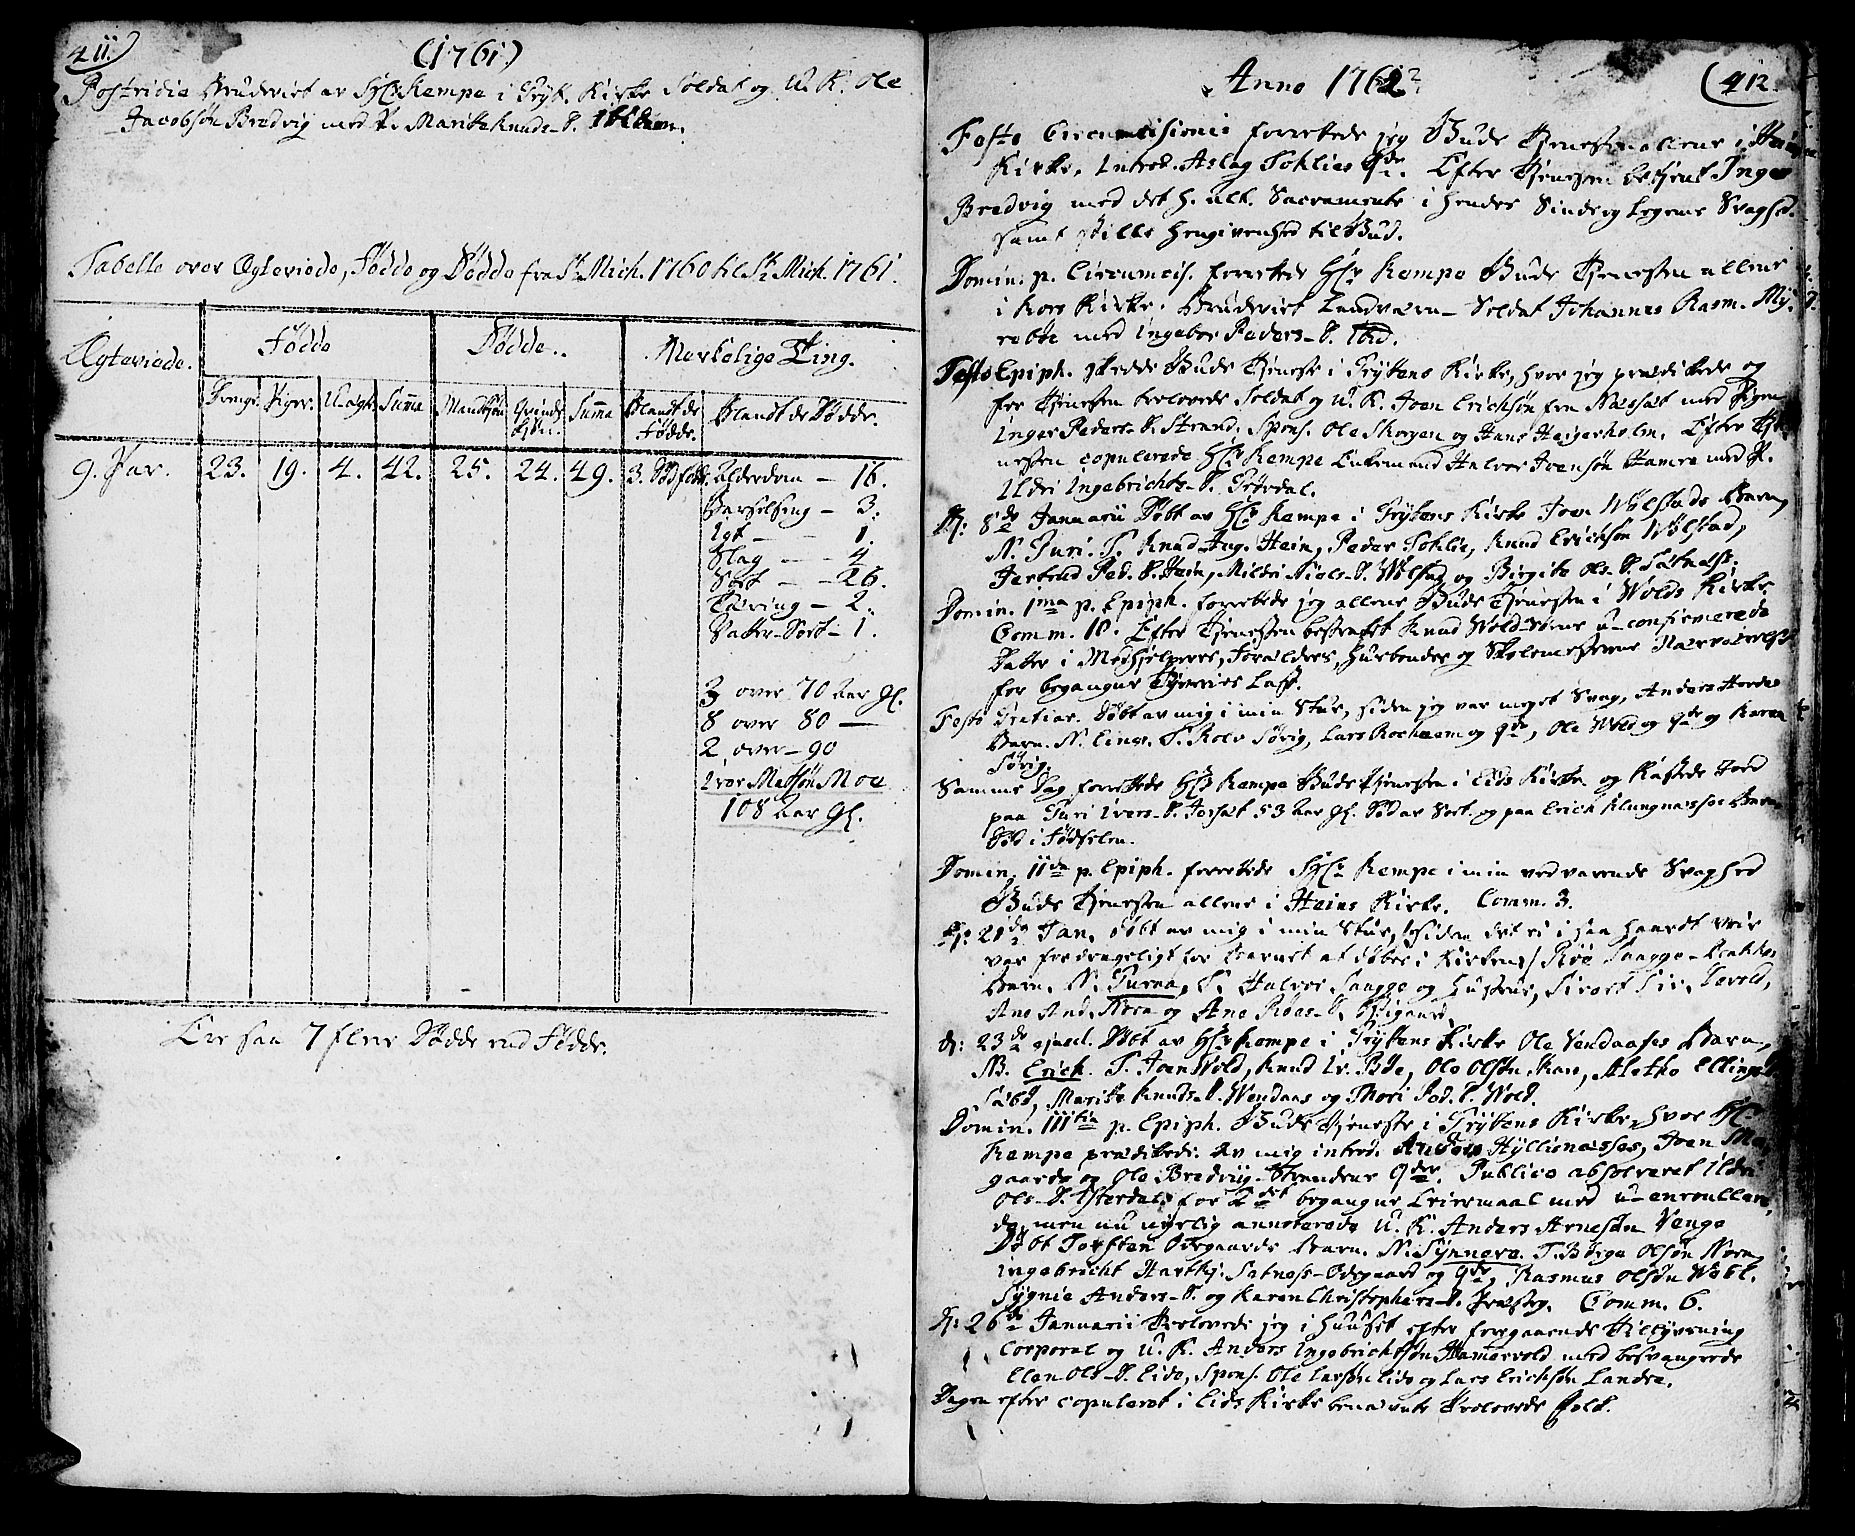 411.
(1761)
Postridie Brudeviet av Hr Kempe i Gryt. Kirke Soldat og U. K. Ole
Jacobsøn Bredvig med P. Marite Knuds-D.
Tabelle over Ægteviede, Fødde og Dødde fra St Mich. 1760 til St Mich. 1761.
Ægteviede. Fødde Dødde.. Merkelige Ting.
Drenge. Piger. Uægte Summa Mandkjøn Qvinde Kjøn. Summa Blandt de Fødde. Blandt de Dødde.
9. Par. 23. 19. 4. 42. 25. 24. 49. 3. Dødfødde. Alderdom — 16.
Barselseng — 3.
Igt — 1.
Slag — 4
Sott — 26.
Tæring — 2.
Vatter-Sott — 1.
3 over 70 Aar gl.
8 over 80 —
2 over — 90
Iver Matsøn Moe
108 Aar gl.
Er saa 7 flere Dødde end Fødde.
412.
Anno 1762
Festo Circumcisionis forrettede jeg Guds Tjenesten allene i Heins
Kirke, Introd. Aslag Tohlies Qde. Efter Tjenesten betjent Inger
Bredvig med det H. Alt. Sacramente i hendes Sinds og Legems Svaghed
samt stille Hengivenhed til Gud.
Domin. p. Circumcis. forrettede Hr Kempe Guds Tjenesten allene
i Kors Kirke. Brudeviet Landværn-Soldat Johannes Rasm. My-
rebøe med Ingebor Peders-D. ibid.
Festo Epiph. skedde Guds Tjeneste i Gryttens Kirke, hvor jeg prædikede og
før Tjenesten trolovede Soldat og U. K. Joen Erichsøn fra Næsset med Pigen
Inger Peders-D. Strand. Spons. Ole Skogen og Hans Heigerholm. Efter Tje-
nesten copulerede Hr Kempe Enkemand Halvor Joensøn Hamre med P.
Ildri Ingebrichts-D. Grøvdal.
D: 8de Januarii Døbt av Hr Kempe i Gryttens Kirke Joen Wølstads Barn,
N. Guri. T. Knud Ing. Hein, Peder Tohlie, Knud Erichsøn Wølstad,
Jertrud Ped. D. Hein, Mildri Niels-D. Wølstad og Birgite Ols-D. Sætnæss.
Domin. 1ma p. Epiph. forrettede jeg allene Guds Tjenesten i Wolds Kirke
Comm. 10. Efter Tjenesten bestraffet Knud Wold-Øiens u-confirmerede
Datter i Medhjelpernes, Forældres, Husbondes og Skolemesterens Nærværelse
for begangne Tyveries Last.
Festo Gratiar. Døbt av mig i min Stue, siden jeg var meget Svag, Anders Hovdes
Barn. N. Einer. T. Rolv Sørig, Lars Rochaem og Qde, Ole Wold og Qde og Karen
Sørig.
Samme Dag forrettede Hr Kempe Guds Tjenesten i Eids Kirke og Kastede Jord
paa Guri Ivers-D. Torset 53 Aar gl. Død av Sott. og paa Erich Klungnæsses Barn
Død i Fødselen.
Domin. IIda p. Epiph. forrettede Hr Kempe i min vedvarende Svaghed
Guds Tjenesten allene i Heins Kirke. Comm. 3.
D: 20de Jan. døbt av mig i min Stue, (siden det ei i saa haardt Veir
var fordrageligt for Barnet at døbes i Kirken) Roe Sogge-Bakkens
Barn. N. Guroa. T. Halvor Sogge og Hustrue, Sivert Siv. Tovold,
Ane And. Nora og Ane Roes-D. Øigaard.
D: 23de ejusd. Døbt av Hr Kempe i Gryttens Kirke Ole Vendaases Barn,
N. Erich. T. Joen Wold, Knud Iv. Bøe, Ole Olsøn Kare, Aletho Ellings D.
Sæbø, Marite Knuds-D. Wendaas og Mari Ped. D. Wold.
Domin. IIItia p. Epiph. Guds Tjeneste i Gryttens Kirke, hvor Hr
Kempe prædikede. Av mig introd. Anders Hyllenæsses, Joen Mo-
gaards og Ole Bredvig-Strandens Qder. Publice absolveret Ildri
Ols-D. Isterdal for 2det begangne Leiermaal med u-enroullere-
de, men nu nyelig annoterede U. K. Anders Arnesøn Venge
Døbt Torsten Øregaards Barn. N. Synnøve. T. Børge Olsøn Nora,
Ingebricht Hartky. Sætnæss-Ødegaard og Qde, Rasmus Olsøn Wold.
Sygnie Anders-D. og Karen Christophers-D. Præsteg. Comm. 6.
D: 26de Januarii Trolovede jeg i Huuset efter foregaaende Tillysning
Corporal og U. K. Anders Ingebrichtsøn Hamervold med besvangrede
Ellen Ols-D. Eide, Spons. Ole Larsøn Eide og Lars Erichsøn Landre.
Dagen efter copuleret i Eids Kirke benævnte Trolovede Folk.